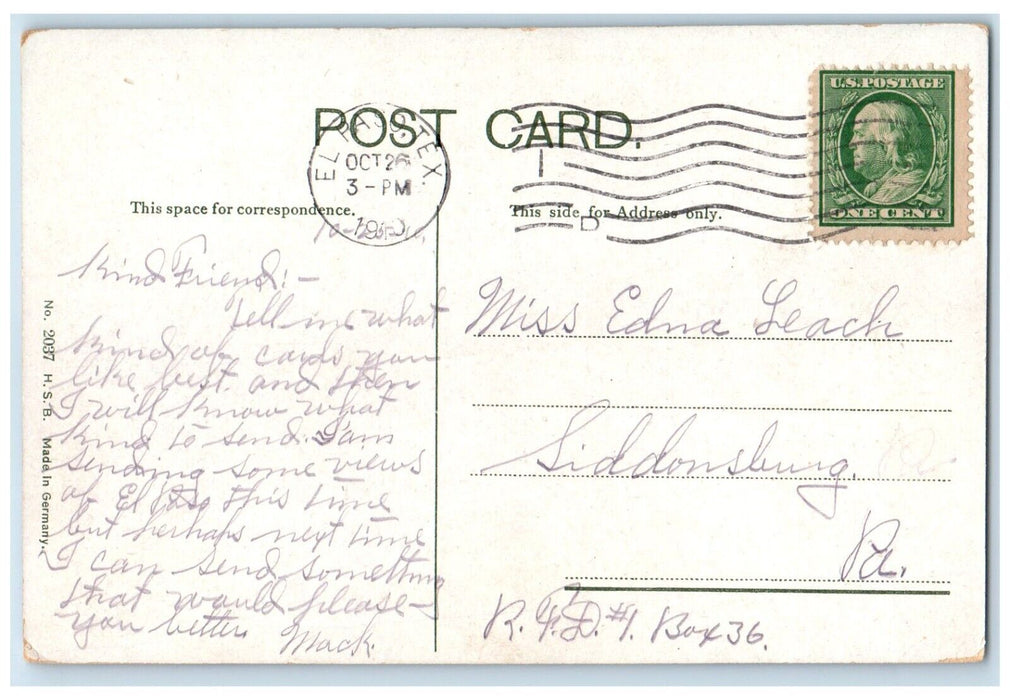 POST CARD.
EL PASO, TEX.
OCT 26
3-PM
U.S. POSTAGE
ONE CENT
This space for correspondence.
This side for Address only.
Kind Friend:-
Tell me what
kind of cards you
like best. and then
I will know what
kind to send. I am
sending some views
of El Paso this time
but perhaps next time
I can send something
that would please
you better.
Mack.
Miss Edna Leach
Siddonsburg.
Pa.
R.F.D. #1. Box 36.
No. 2037 H. S. B. Made in Germany.